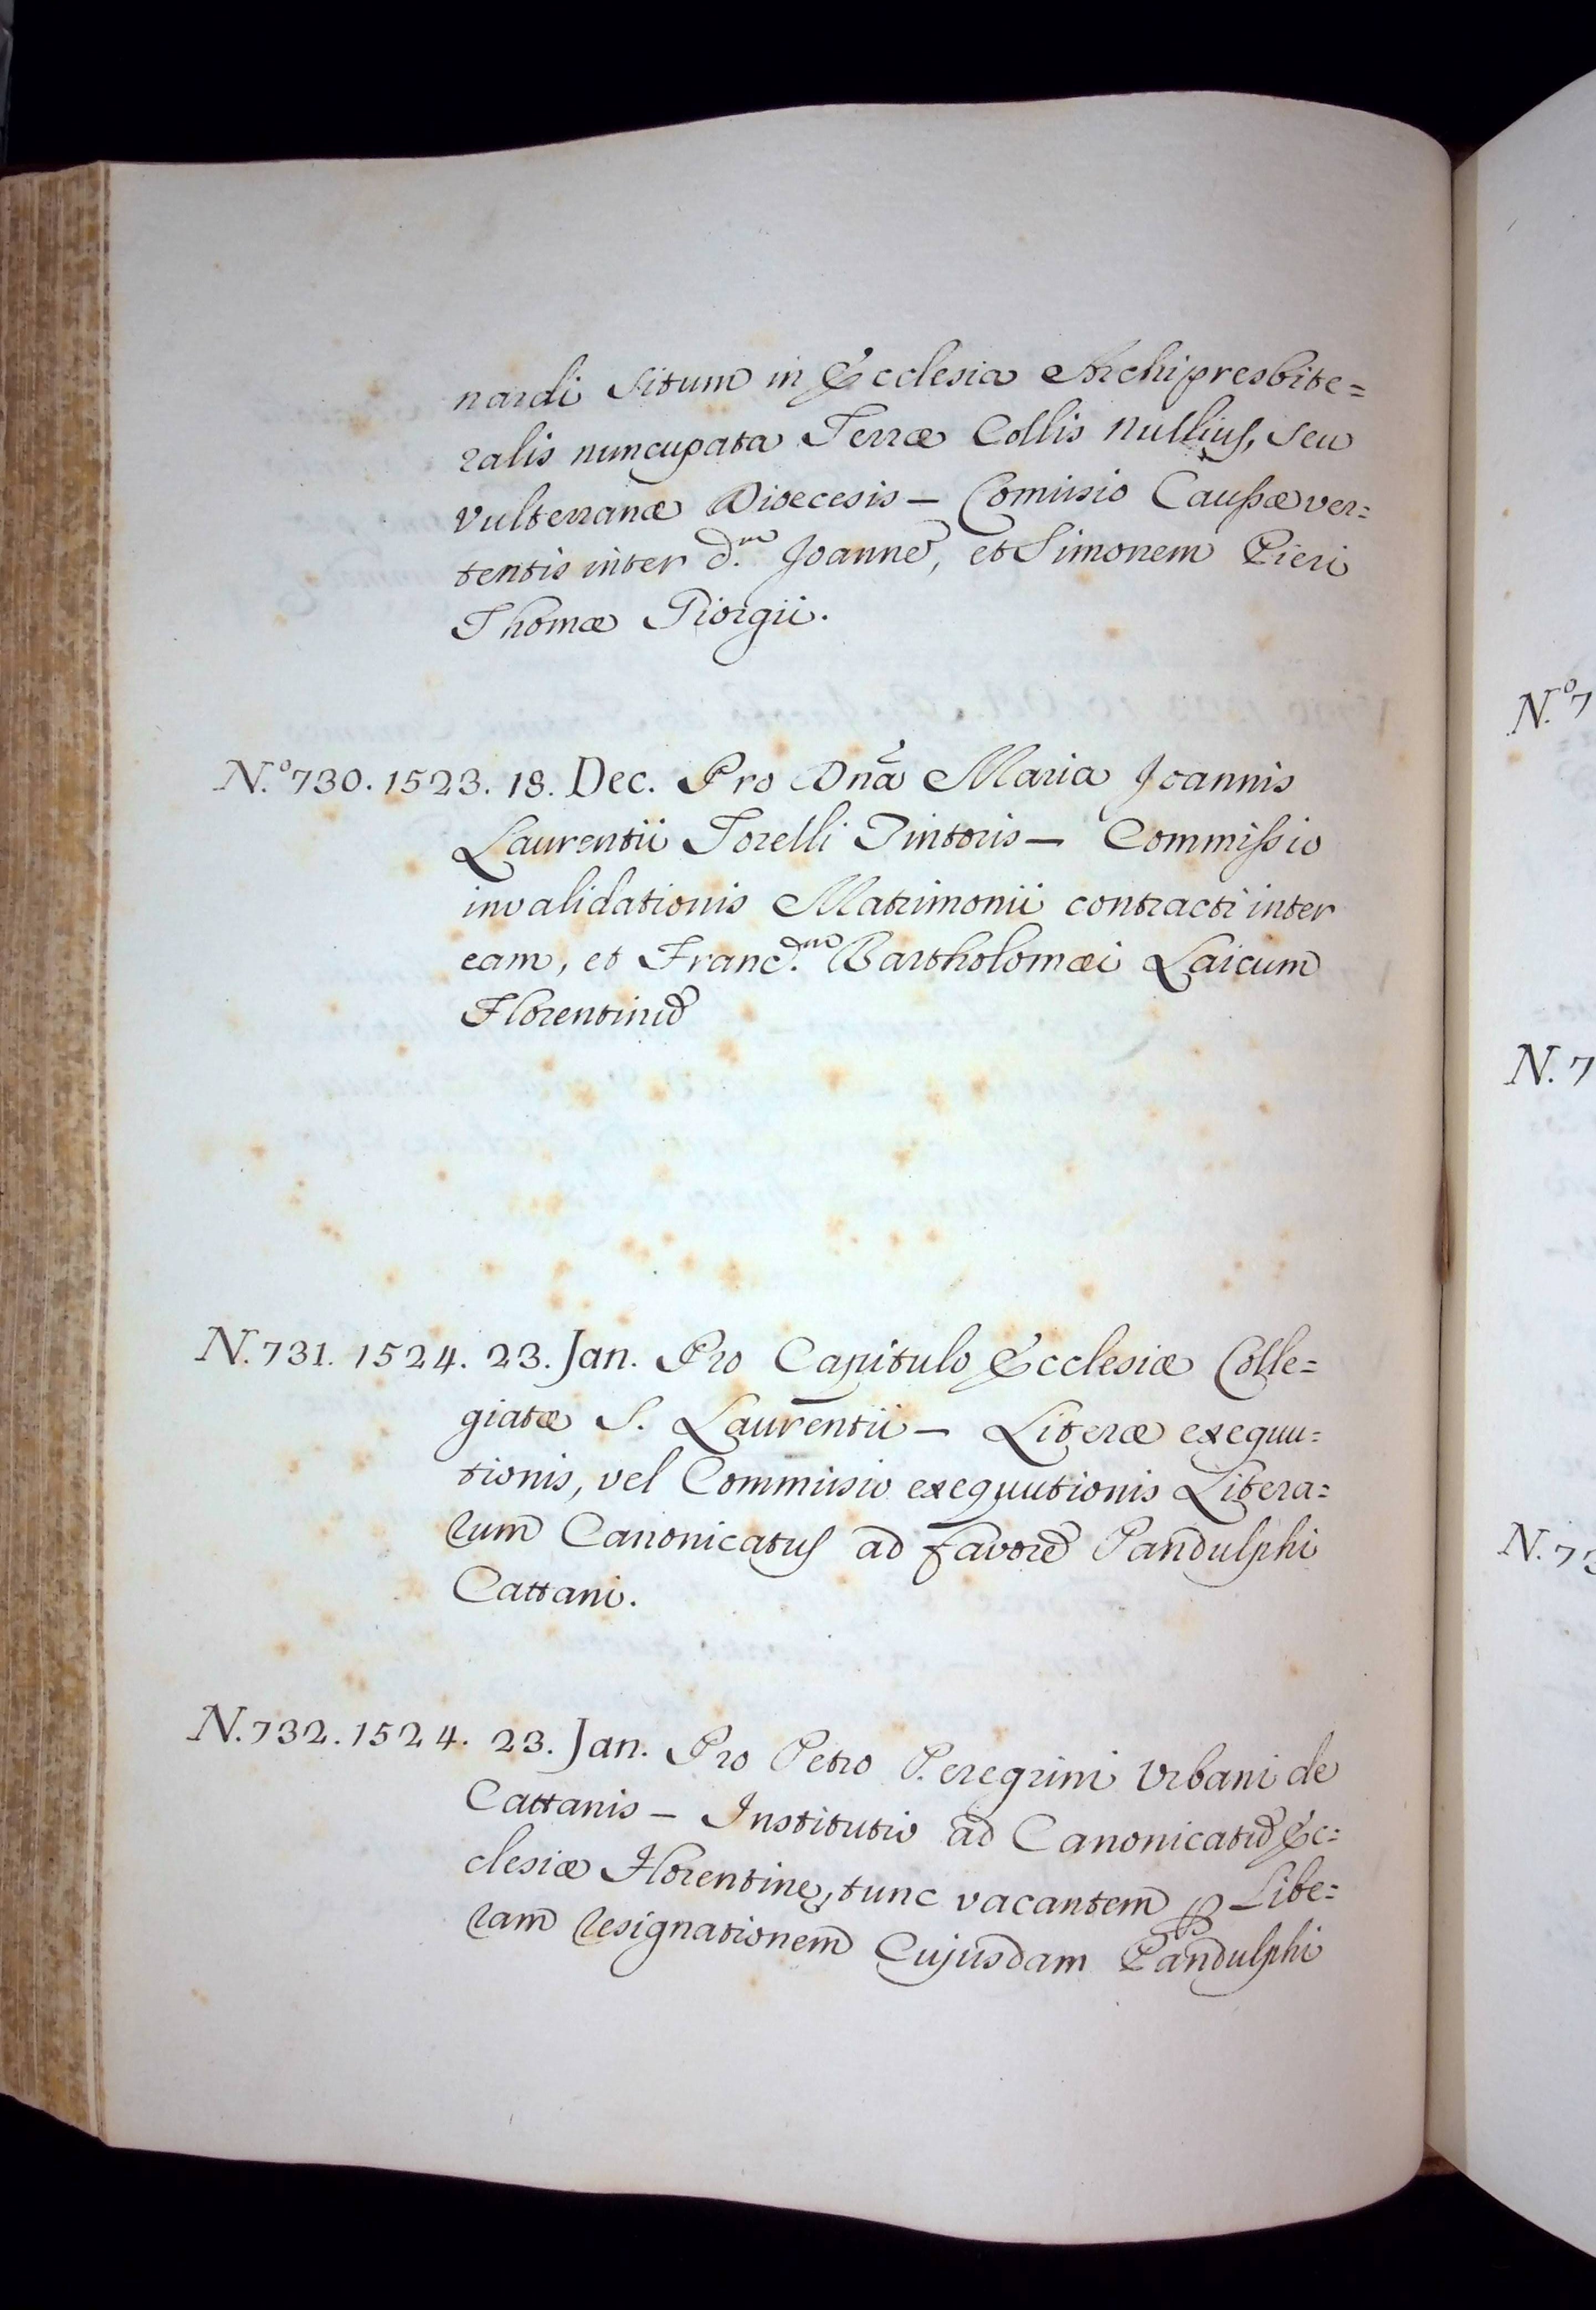 nardi situm in Ecclesia Archipresbite=
ralis nuncupata Terræ Collis nullius, seu
vulterranæ Dioecesis — Comissio Caussæ ver=
tentis inter d.m Joanne, et Simonem Pieri
Thomæ Giorgii.
N.º 730. 1523. 18. Dec. Pro Dnā Maria Joannis
Laurentii Torelli Tintoris — Commissio
invalidationis Matrimonii contracti inter
eam, et Franc.um Bartholomæi Laicum
Florentinū
N. 731. 1524. 23. Jan. Pro Capitulo Ecclesiæ Colle=
giatæ S. Laurentii — Literæ exequu=
tionis, vel Commissio exequutionis Litera=
rum Canonicatus ad favorē Pandulphi
Cattani.
N. 732. 1524. 23. Jan. Pro Petro Peregrini Urbani de
Cattanis — Institutio ad Canonicatū Ec=
clesiæ Florentinę, tunc vacantem ꝑ Libe=
ram resignationem Cujusdam Pandulphi
N.º 7
N. 7
N. 73